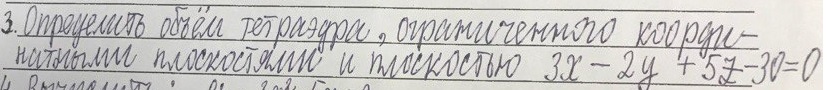 3. Определить объём тетраэдра, ограниченного коорди-
натными плоскостями и плоскостью 3x - 2y + 5z - 30 = 0